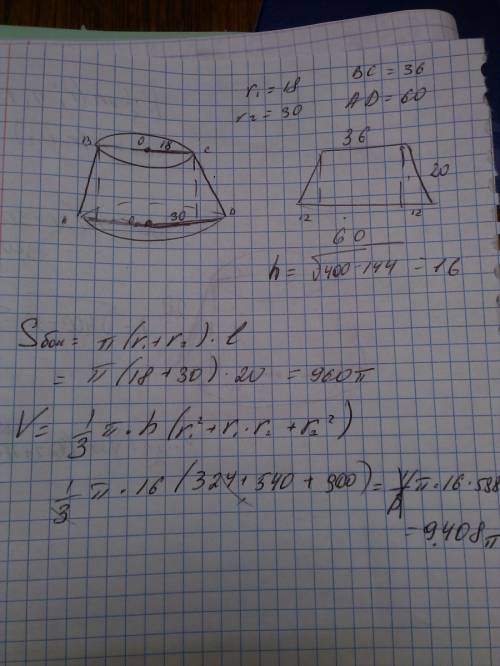 r₁ = 18 BC = 36
r₂ = 30 AD = 60
B O 18 C
36
20
A O 30 D
12 12
60
h = √400-144 = 16
Sбок = π(r₁+r₂)·l
= π(18+30)·20 = 960π
V = 1/3 π·h(r₁²+r₁·r₂+r₂²)
1/3 π·16(324+540+900) = 1/3 π·16·588
= 9408π